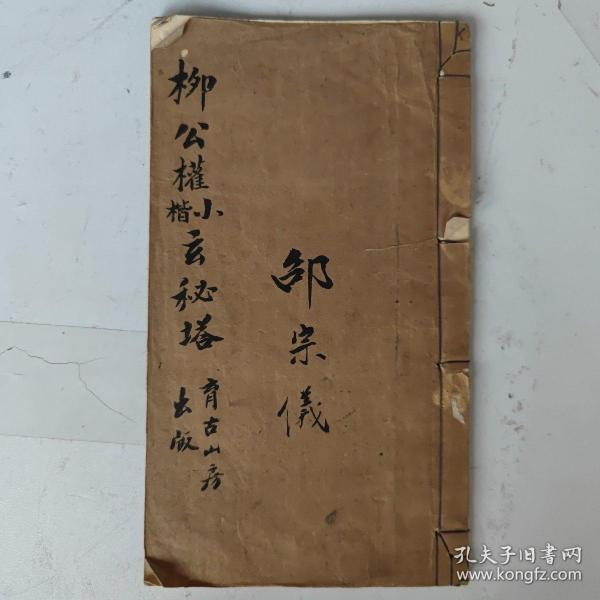 柳公權小楷玄秘塔
育古山房
出版
邵宗儀
孔夫子旧书网
www.kongfz.com